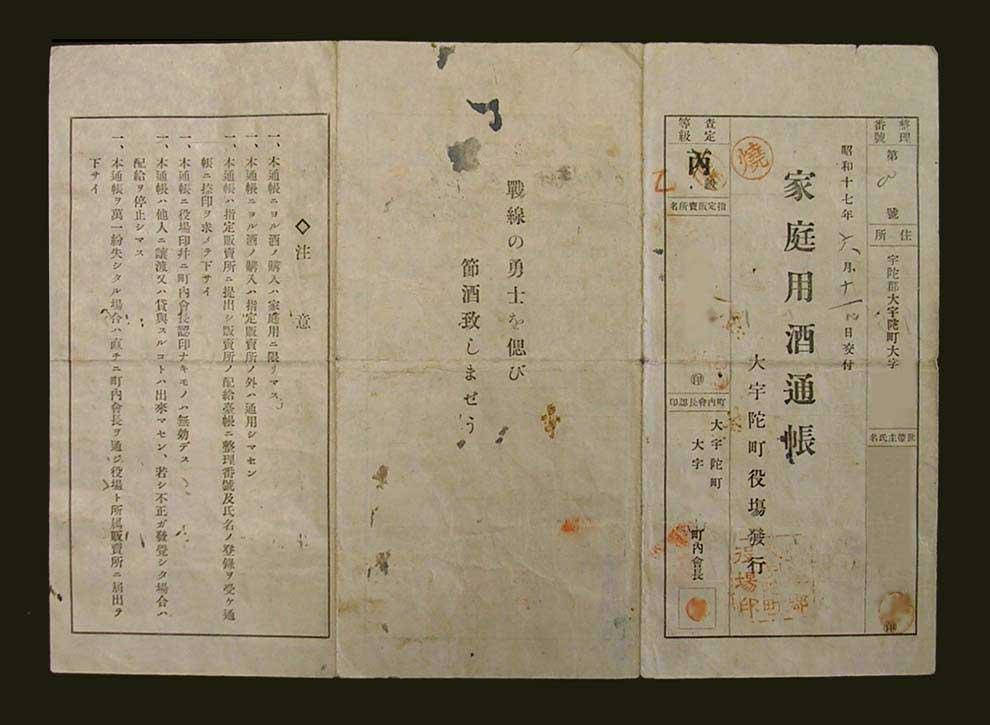 整理番號
第 8 號
住所
宇陀郡大宇陀町大字
世帶主氏名
印
昭和十七年 六月十一日交付
家庭用酒通帳
大宇陀町役場發行
燒
査定等級
丙
級
乙
指定販賣所名
印
町內會長認印
大宇陀町
大字
町內會長
役場印
戰線の勇士を偲び
節酒致しませう
◇注意
一、本通帳ニヨル酒ノ購入ハ家庭用ニ限リマス
一、本通帳ニヨル酒ノ購入ハ指定販賣所ノ外ハ通用シマセン
一、本通帳ハ指定販賣所ニ提出シ販賣所ノ配給臺帳ニ整理番號及氏名ノ登錄ヲ受ケ通
帳ニ捺印ヲ求メラ下サイ
一、本通帳ニ役場印幷ニ町內會長認印ナキモノハ無効デス
一、本通帳ハ他人ニ讓渡又ハ貸與スルコトハ出來マセン、若シ不正ガ發覺シタ場合ハ
配給ヲ停止シマス
一、本通帳ヲ萬一紛失シタル場合ハ直チニ町內會長ヲ通ジ役場ト所屬販賣所ニ届出ラ
下サイ